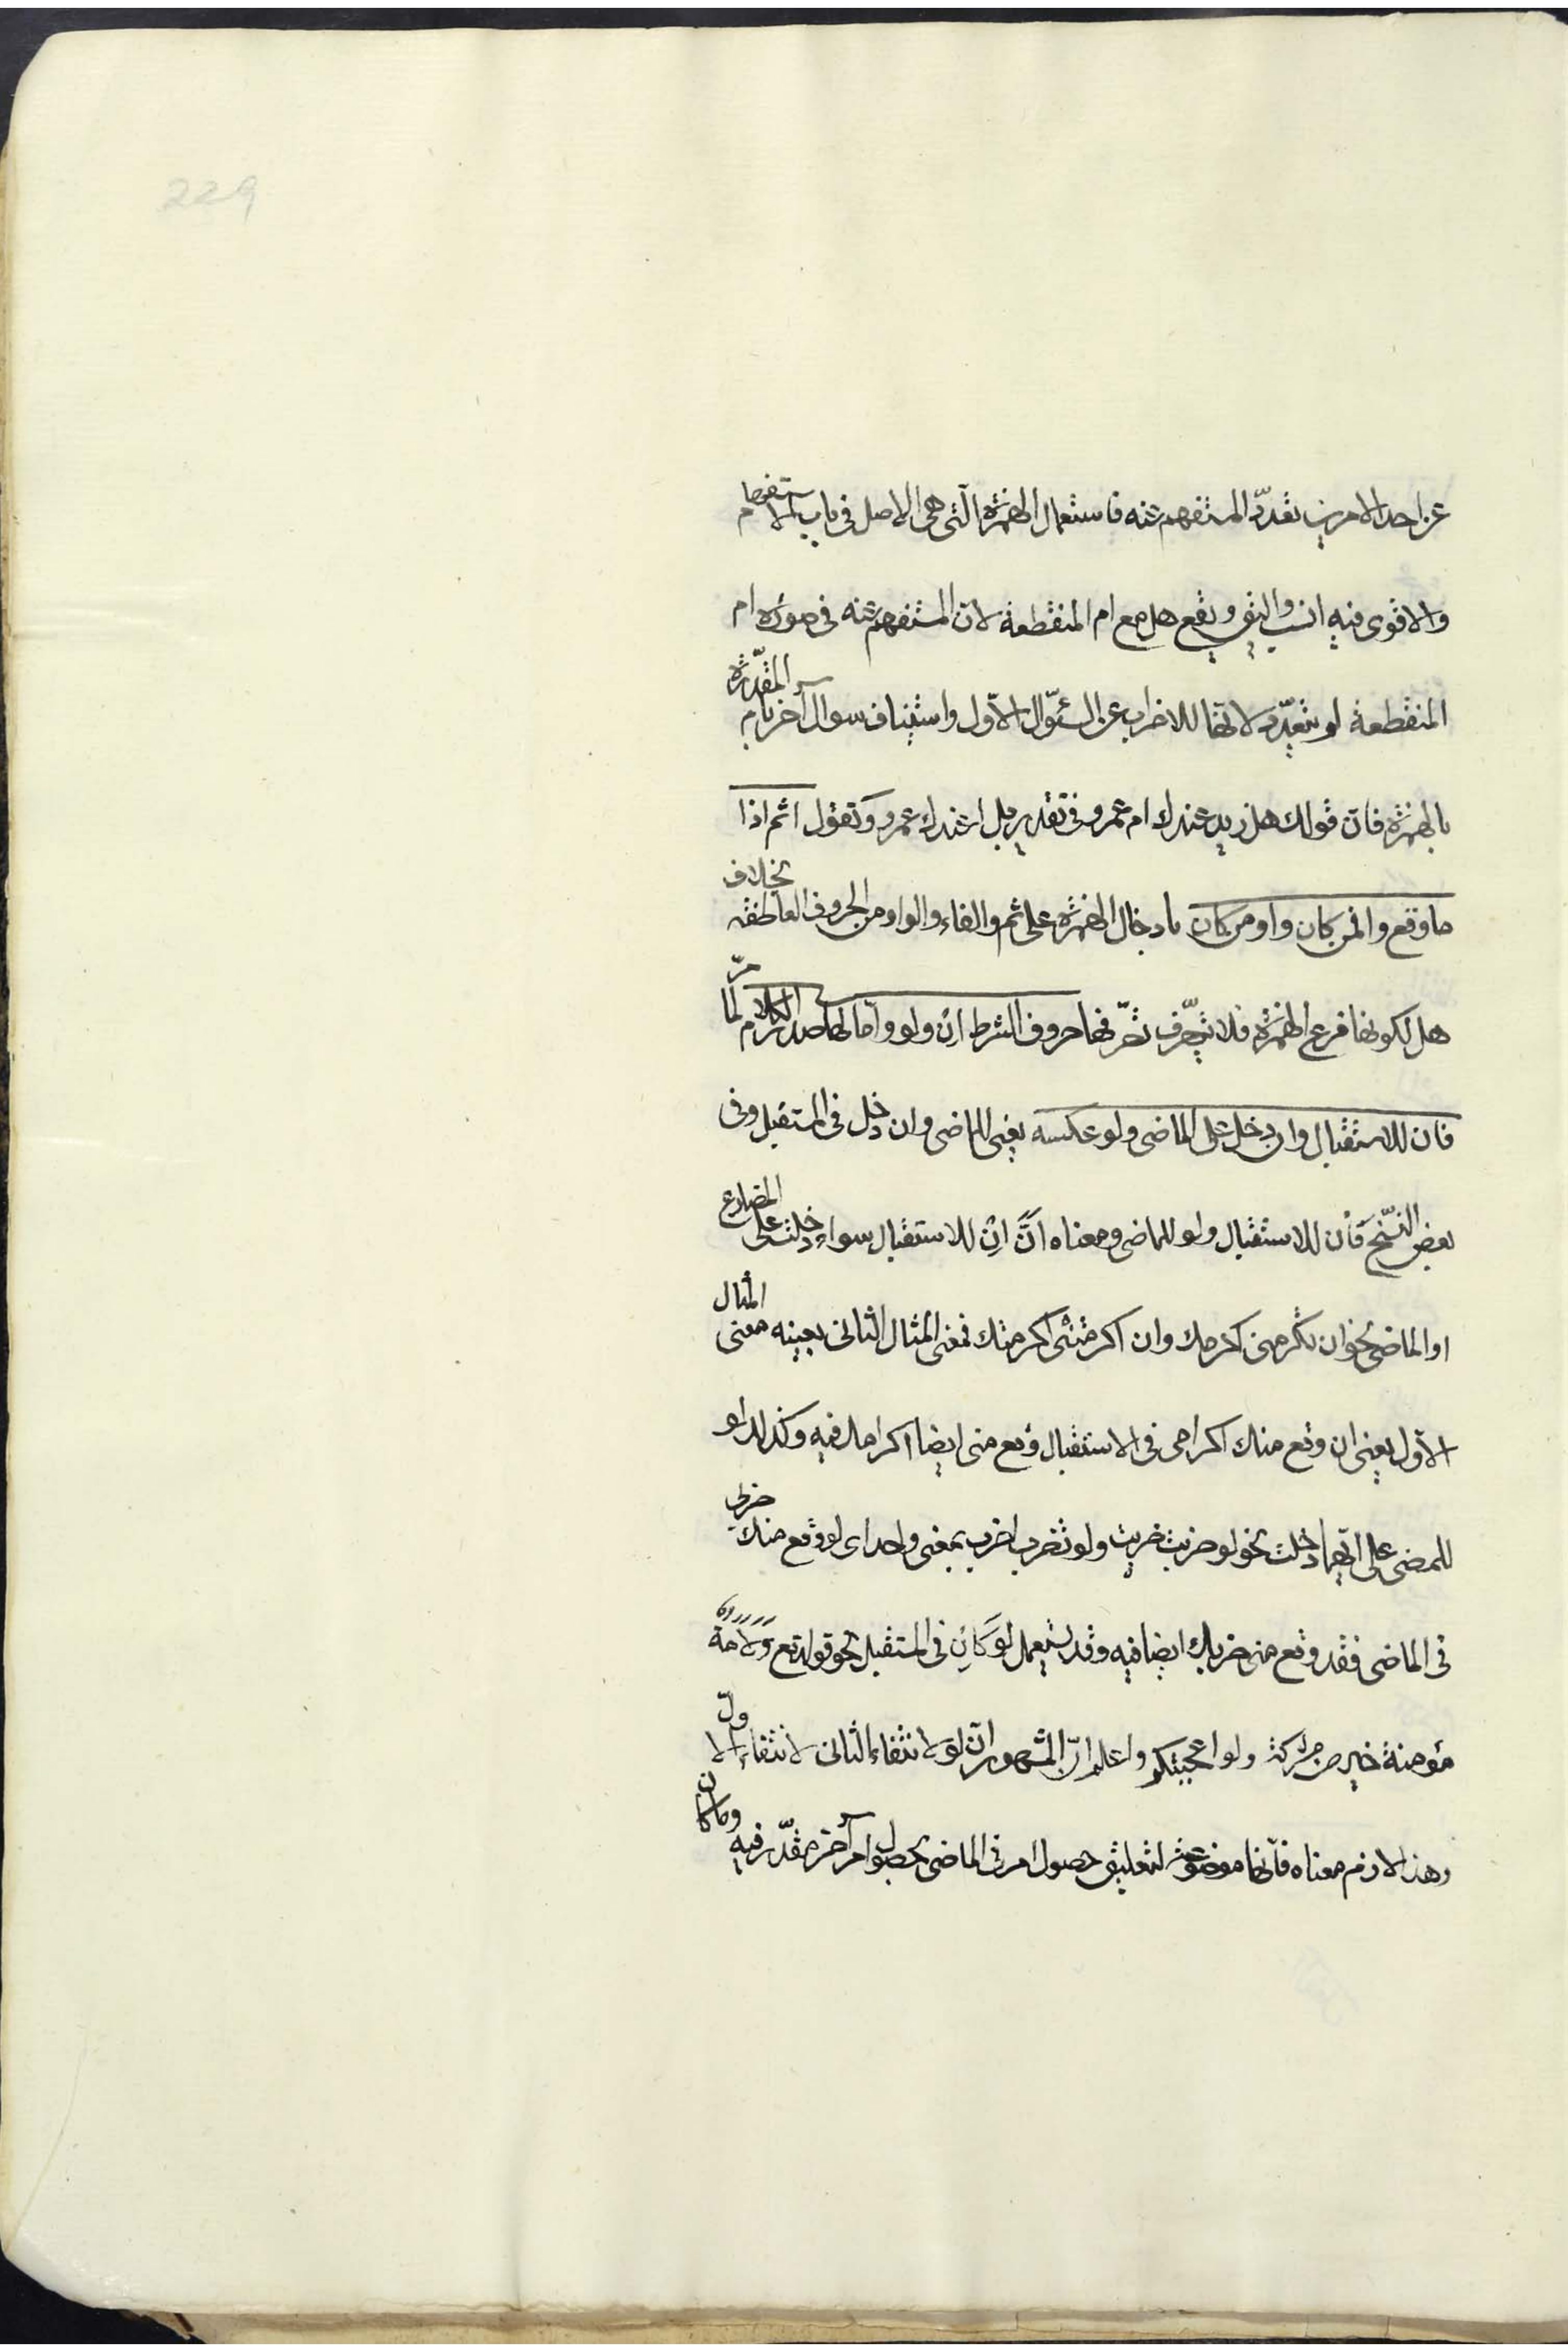 229
عن احد الامرين تعدّد المستفهم عنه فاستعمال الهمزة الّتی هی الاصل فی باب الاستفهام
والاقوی فیه انسب والیق ویقع هل مع ام المنقطعة لانّ المستفهم عنه فی صورة ام
المنقطعة لم یتعدّد لانّها للاضراب عن السّؤال الاوّل واستیناف سوال آخر بام المقدّرة
بالهمزة فانّ قولك هل زید عندك ام عمرو فی تقدیر بل اعندك عمرو وتقول اثم اذا
ما وقع وافمن کان واومن کان بادخال الهمزة علی ثم والفاء والواو من الحروف العاطفة بخلاف
هل لکونها فرع الهمزة فلا تتصرّف تصرّفها حروف الشرط ان ولو وامّا لها صدر الکلام لما مرّ
فان للاستقبال وان دخل علی الماضی ولو عکسه یعنی للماضی وان دخل فی المستقبل وفی
بعض النّسخ فان للاستقبال ولو للماضی ومعناه انّ ان للاستقبال سواء دخلت علی المضارع
او الماضی نحو ان تکرمنی اکرمك وان اکرمتنی اکرمتك فمعنی المثال الثانی بعینه معنی المثال
الاوّل یعنی ان وقع منك اکرامی فی الاستقبال وقع منی ایضا اکرامك فیه وکذلك لو
للمضی علی ایّهما دخلت نحو لو ضربت ضربت ولو تضرب اضرب بمعنی واحد ای لو وقع منك ضربی
فی الماضی فقد وقع منی ضربك ایضا فیه وقد یستعمل لو کان فی المستقبل نحو قوله تع ولامة
مؤمنة خیر من مشرکة ولو اعجبتکم واعلم انّ المشهور انّ لو لانتفاء الثانی لانتفاء الاول
وهذا لازم معناه فانّها موضوعة لتعلیق حصول امر فی الماضی بحصول امر آخر مقدّر فیه وما کان